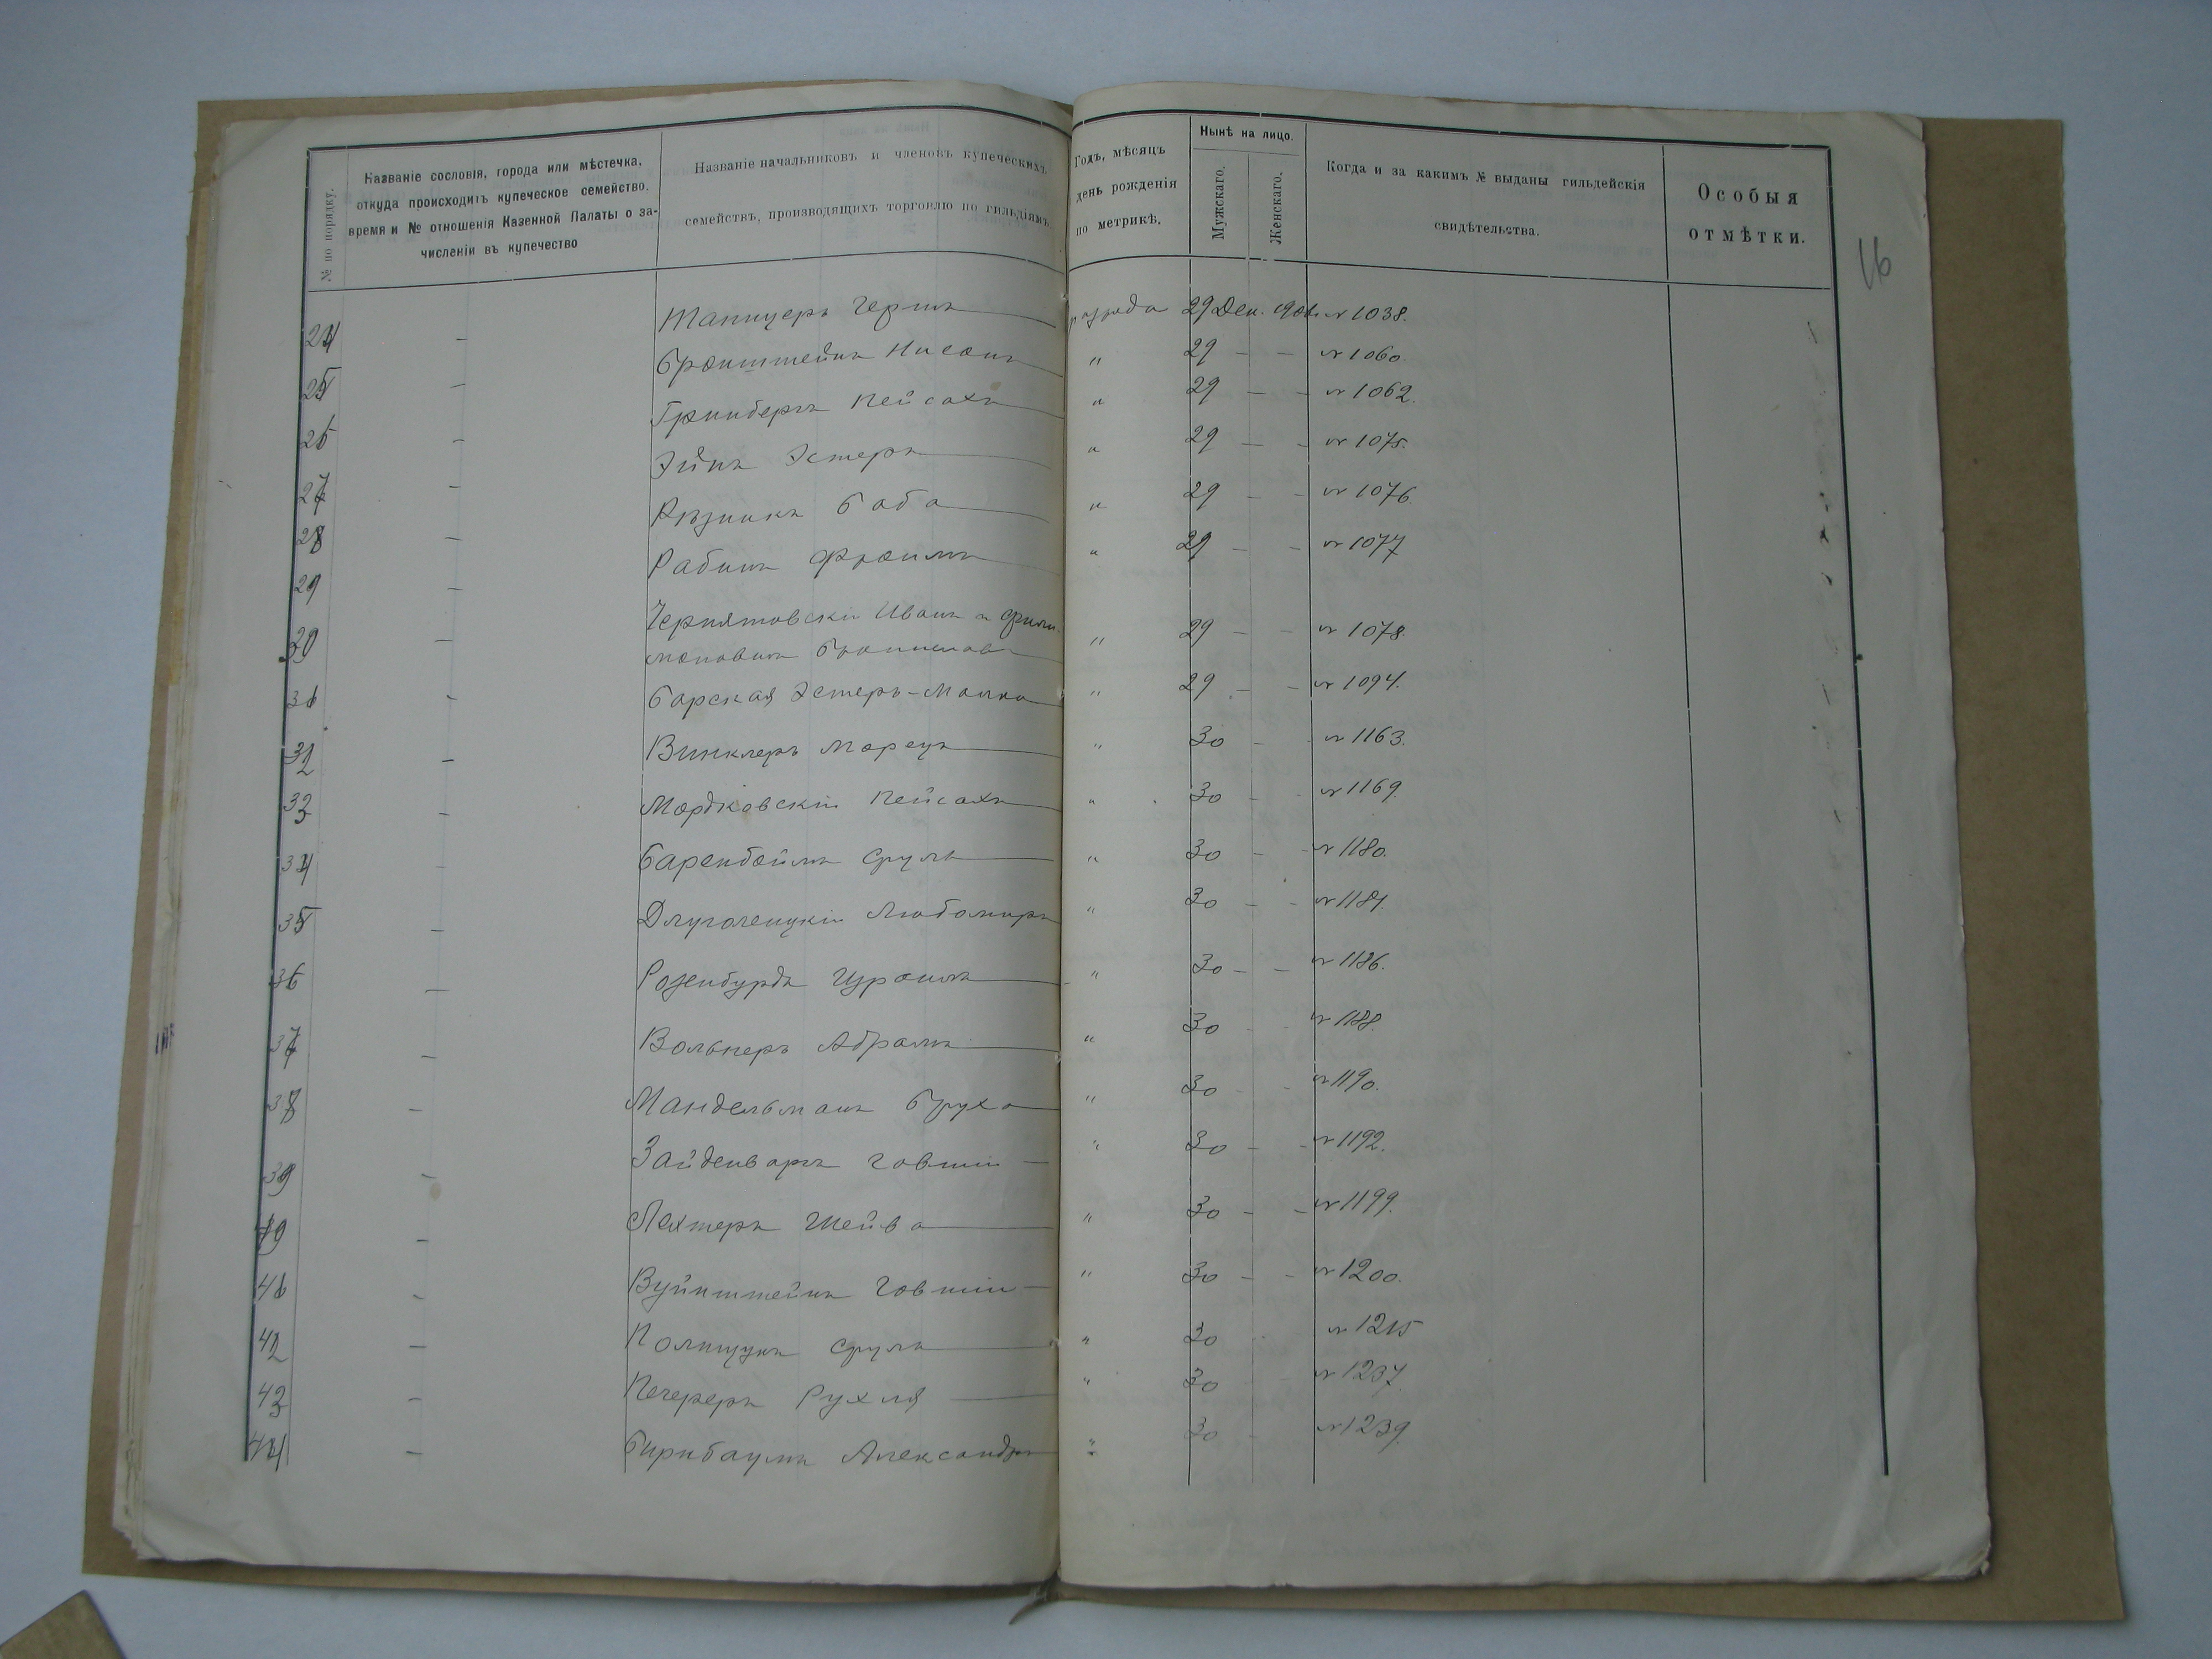 № по порядку.
Названіе сословія, города или мѣстечка,
откуда происходитъ купеческое семейство.
время и № отношенія Казенной Палаты о за-
численіи въ купечество
Названіе начальниковъ и членовъ купеческихъ
семействъ, производящихъ торговлю по гильдіямъ.
Годъ, мѣсяцъ
день рожденія
по метрикѣ.
Нынѣ на лицо.
Мужскаго.
Женскаго.
Когда и за какимъ № выданы гильдейскія
свидѣтельства.
Особыя
отмѣтки.
16
24 — Танцеръ Герш разряда 29 Дек. № 1038.
25 — Бронштейнъ Нисонъ " 29 — — № 1060
26 — Гринбергъ Пейсахъ " 29 — — № 1062.
27 — Эстеръ " 29 — — № 1075.
28 — Рѣзникъ Баба " 29 — — № 1076.
29 — Рабинъ Фроимъ " 29 — — № 1077
30 — Чернятовскій Иванъ и Фили-
моновичъ Брониславъ " 29 — — № 1078.
31 — Барская Эстеръ-Малка " 29 — — № 1094.
32 — Винклеръ Морецъ " 30 — № 1163.
33 — Мордковскій Пейсахъ " 30 — № 1169.
34 — Баренбоймъ Сруль " 30 — № 1180.
35 — Длуголенцкій Любомиръ " 30 — — № 1181.
36 — Розенбурдъ Израиль " 30 — — № 1186.
37 — Вольнеръ Абрамъ " 30 № 1188.
38 — Мандельманъ Бруха " 30 — № 1190.
39 — Зайденваргъ Говшій — " 30 — — № 1192.
40 — Лехтеръ Шейва " 30 — — № 1199.
41 — Вуйнштейнъ Говшій — " 30 — — № 1200.
42 — Полищукъ Сруль " 30 № 1215
43 — Печереръ Рухля " 30 № 1237.
44 — Бирнбаумъ Александръ " 30 № 1239.